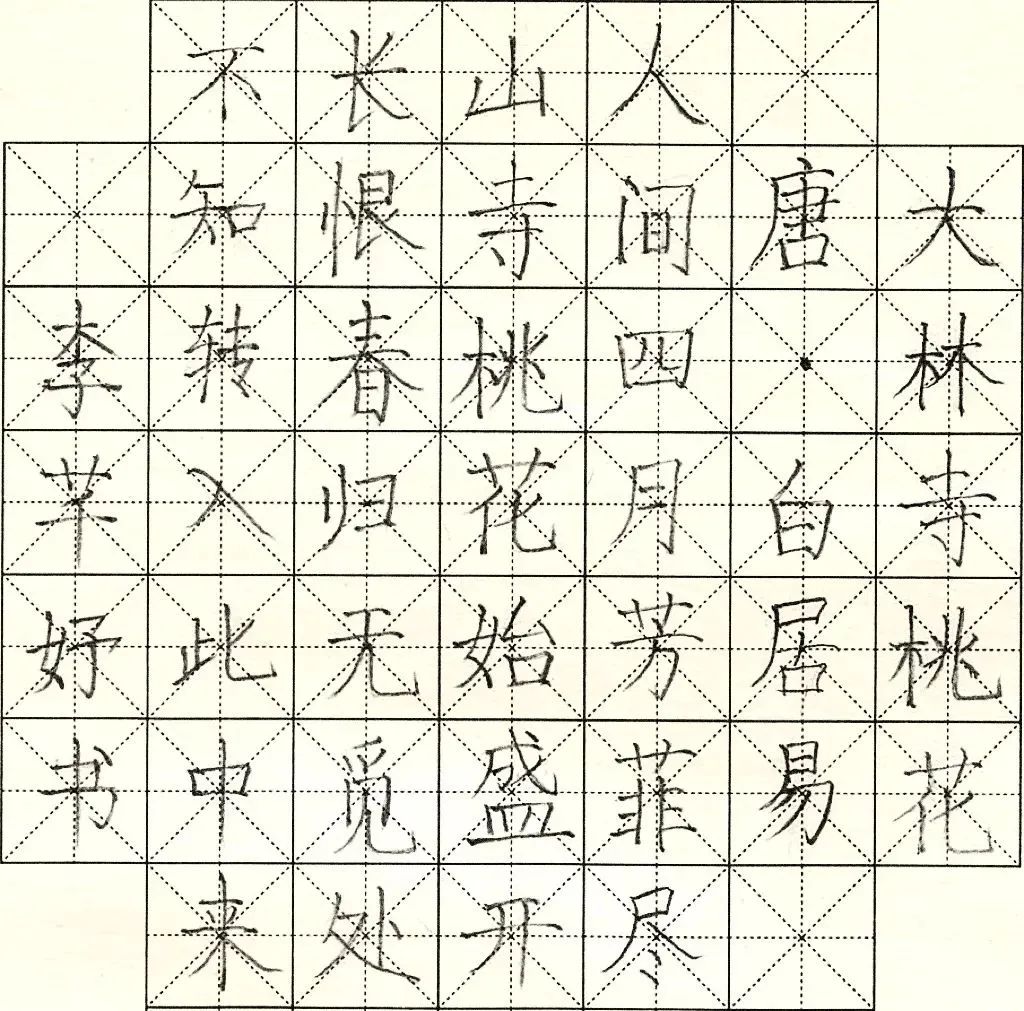 大林寺桃花
唐·白居易
人间四月芳菲尽
山寺桃花始盛开
长恨春归无觅处
不知转入此中来
李苹妤书